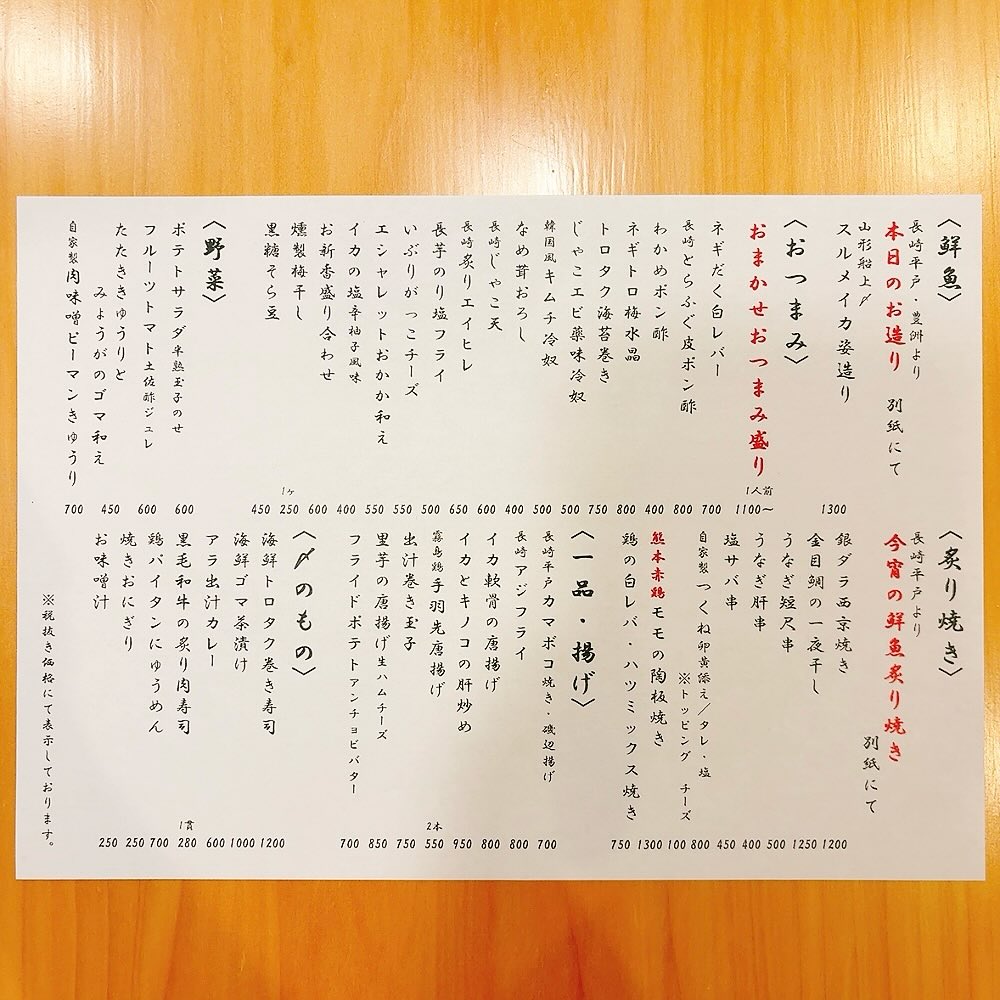 〈鮮魚〉
長崎平戸・豊洲より
本日のお造り 別紙にて
山形船上〆
スルメイカ姿造り 1300
〈おつまみ〉
おまかせおつまみ盛り 1人前 1100〜
ネギだく白レバー 700
長崎とらふぐ皮ポン酢 800
わかめポン酢 400
ネギトロ梅水晶 800
トロタク海苔巻き 750
じゃこエビ薬味冷奴 500
韓国風キムチ冷奴 500
なめ茸おろし 400
長崎じゃこ天 500
長崎炙りエイヒレ 650
長芋のり塩フライ 500
いぶりがっこチーズ 550
エシャレットおかか和え 550
イカの塩辛柚子風味 400
お新香盛り合わせ 600
燻製梅干し 1ヶ 250
黒糖そら豆 450
〈野菜〉
ポテトサラダ半熟玉子のせ 600
フルーツトマト土佐酢ジュレ 600
たたききゅうりと
みょうがのゴマ和え 450
自家製肉味噌ピーマンきゅうり 700
〈炙り焼き〉
長崎平戸より
今宵の鮮魚炙り焼き
別紙にて
銀ダラ西京焼き 1200
金目鯛の一夜干し 1250
うなぎ短尺串 500
うなぎ肝串 400
塩サバ串 450
自家製つくね卵黄添え／タレ・塩 800
※トッピング チーズ 100
熊本赤鶏モモの陶板焼き 1300
鶏の白レバ・ハツミックス焼き 750
〈一品・揚げ〉
長崎平戸カマボコ焼き・磯辺揚げ 700
長崎アジフライ 800
イカ軟骨の唐揚げ 800
イカとキノコの肝炒め 950
霧島鶏手羽先唐揚げ 2本 550
出汁巻き玉子 750
里芋の唐揚げ生ハムチーズ 850
フライドポテトアンチョビバター 700
〈〆のもの〉
海鮮トロタク巻き寿司 1200
海鮮ゴマ茶漬け 1000
アラ出汁カレー 600
黒毛和牛の炙り肉寿司 1貫 280
鶏パイタンにゅうめん 700
焼きおにぎり 250
お味噌汁 250
※税抜き価格にて表示しております。